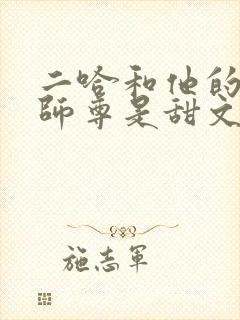 二哈和他的
師尊是甜文
施志軍